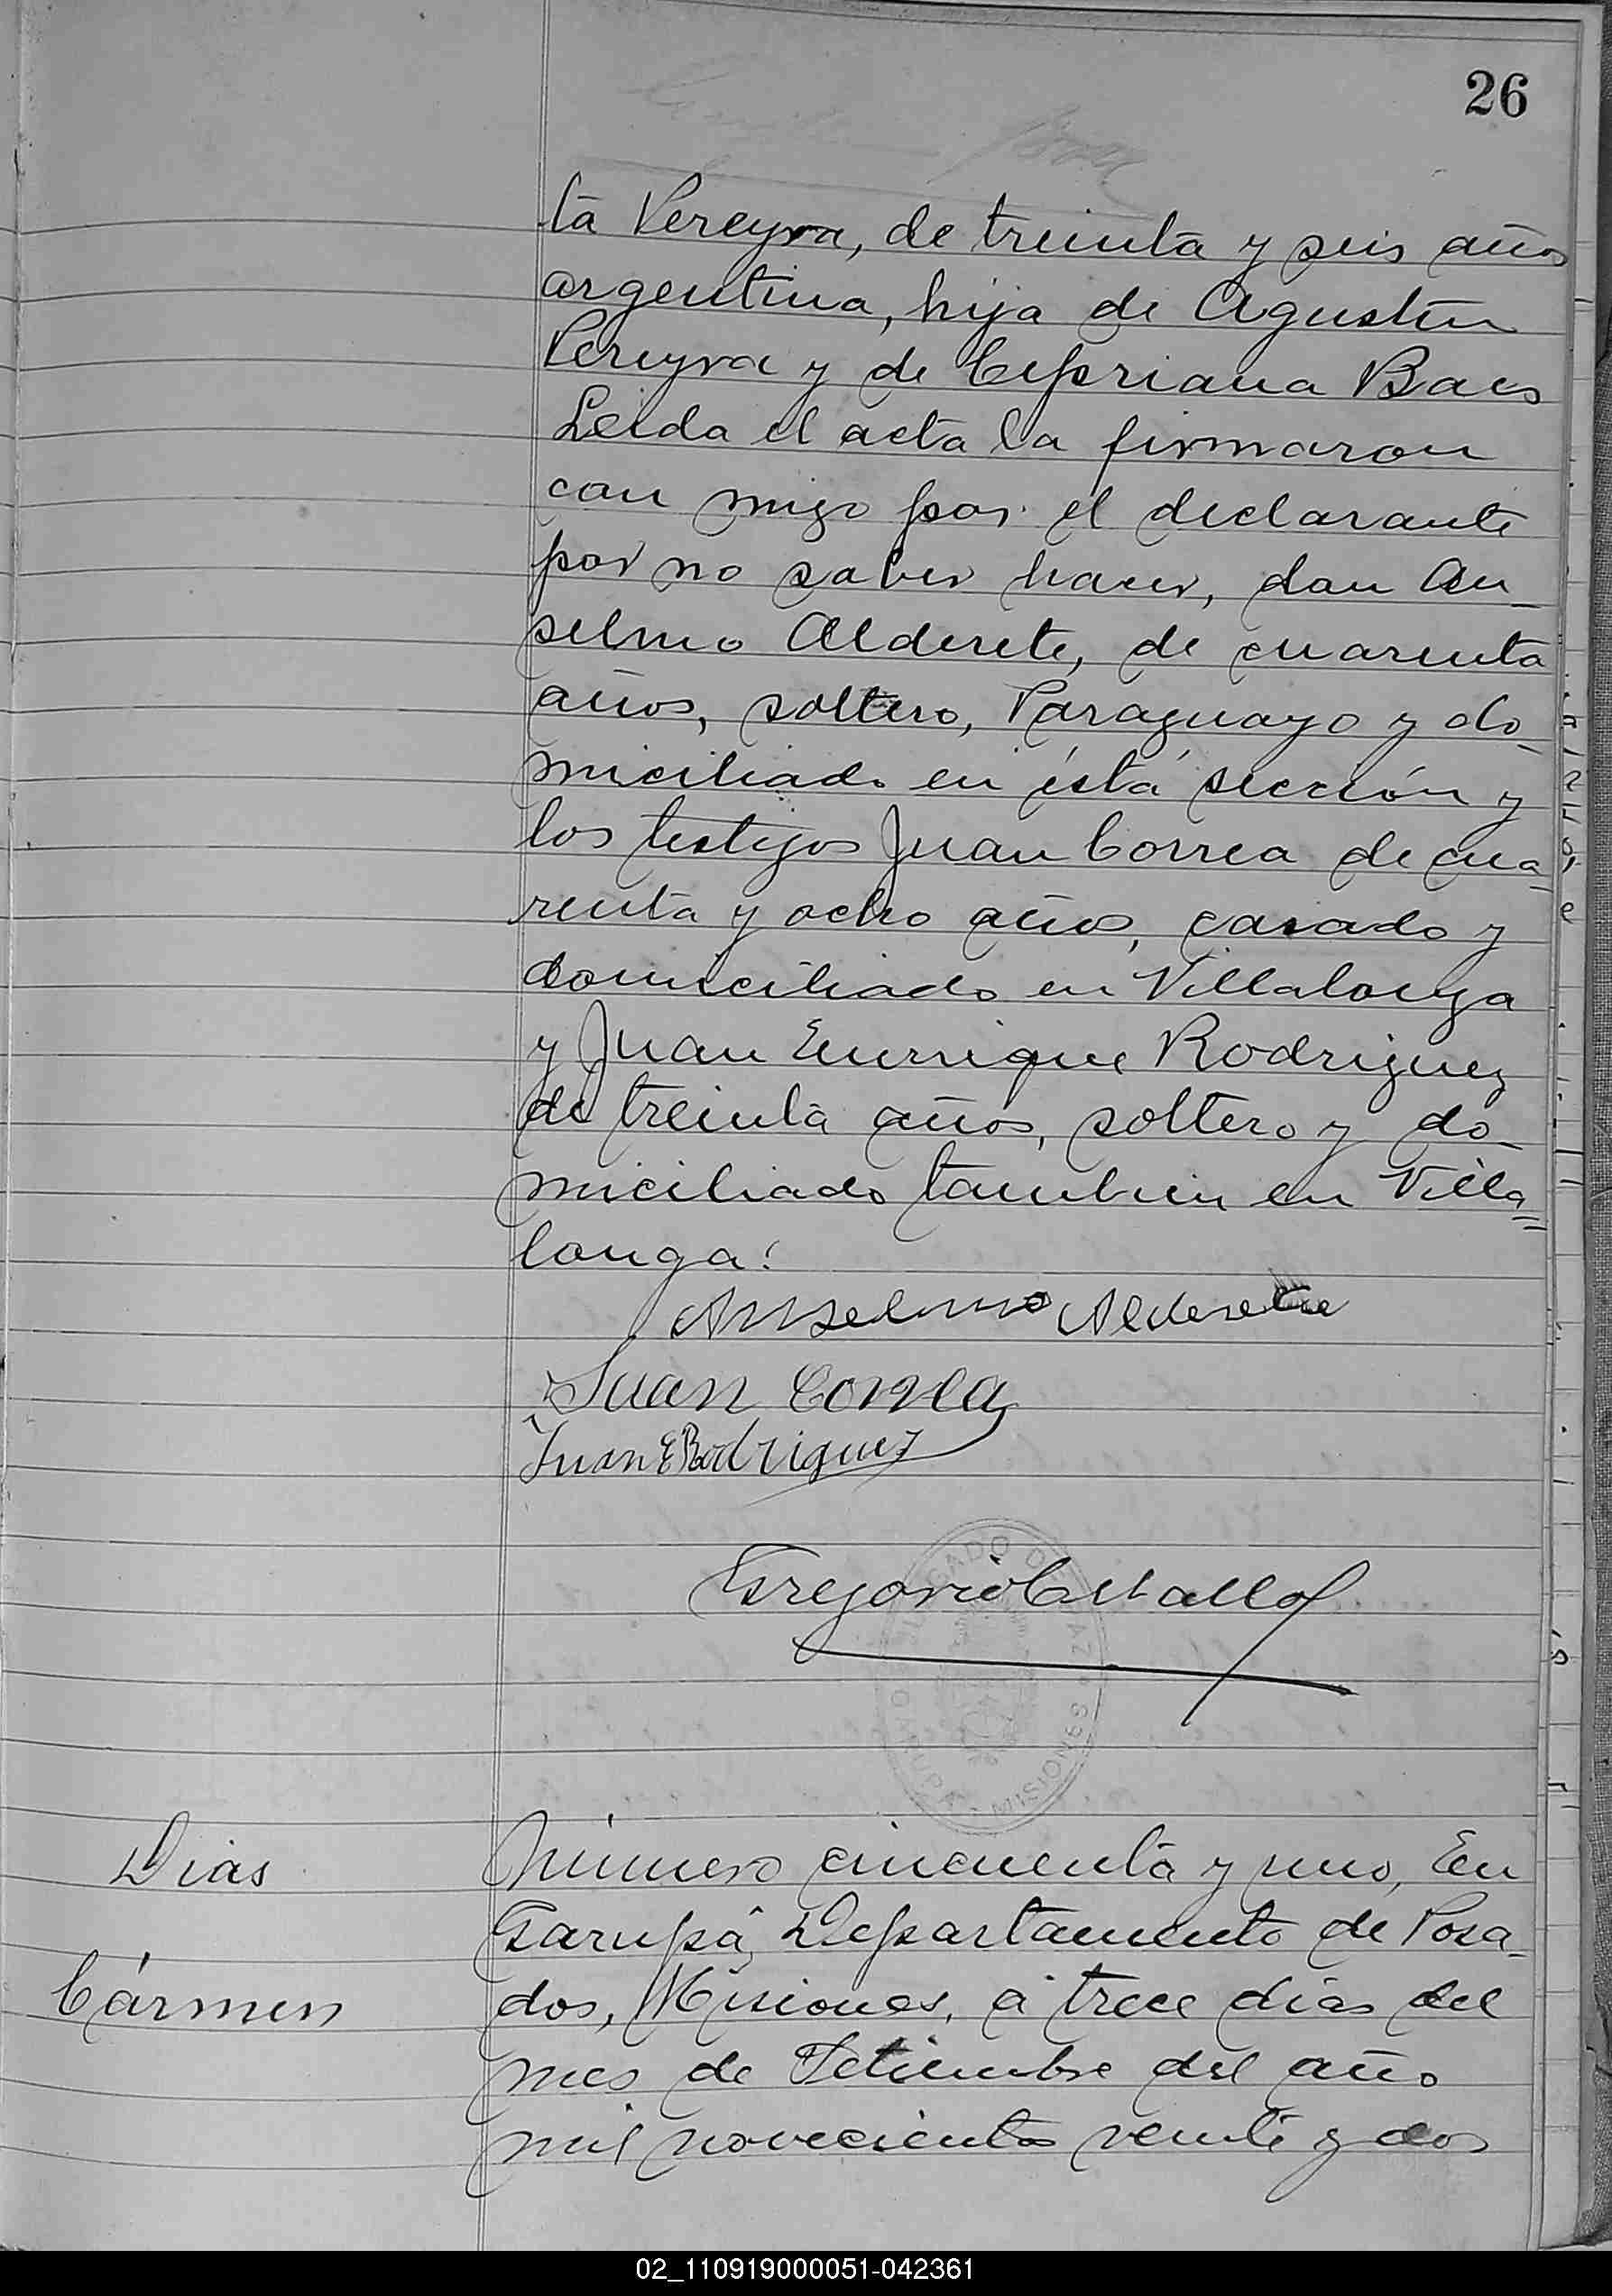 26
ta Pereyra, de treinta y seis años
argentina, hija de Agustin
Pereyra y de Cipriana Baes
Leida el acta la firmaron
con migo por el declarante
por no saber hacer, don An_
selmo Alderete, de cuarenta
años, soltero, Paraguayo y do_
miciliado en ésta sección y
los testigos Juan Correa de cua_
renta y ocho años, casado y
domiciliado en Villalonga
y Juan Enrrique Rodriguez
de treinta años, soltero y do_
miciliado tambien en Villa=
longa:
Anselmo Alderete
Juan Correa
Juan E Rodriguez
JUZGADO DE PAZ
GARUPA MISIONES
Gregorio
Dias
Cármen
Número cincuenta y uno, En
Garupá, Departamento de Posa_
dos, Misiones, á trece dias del
mes de Setiembre del año
mil novecientos veinte y dos
02_110919000051-042361